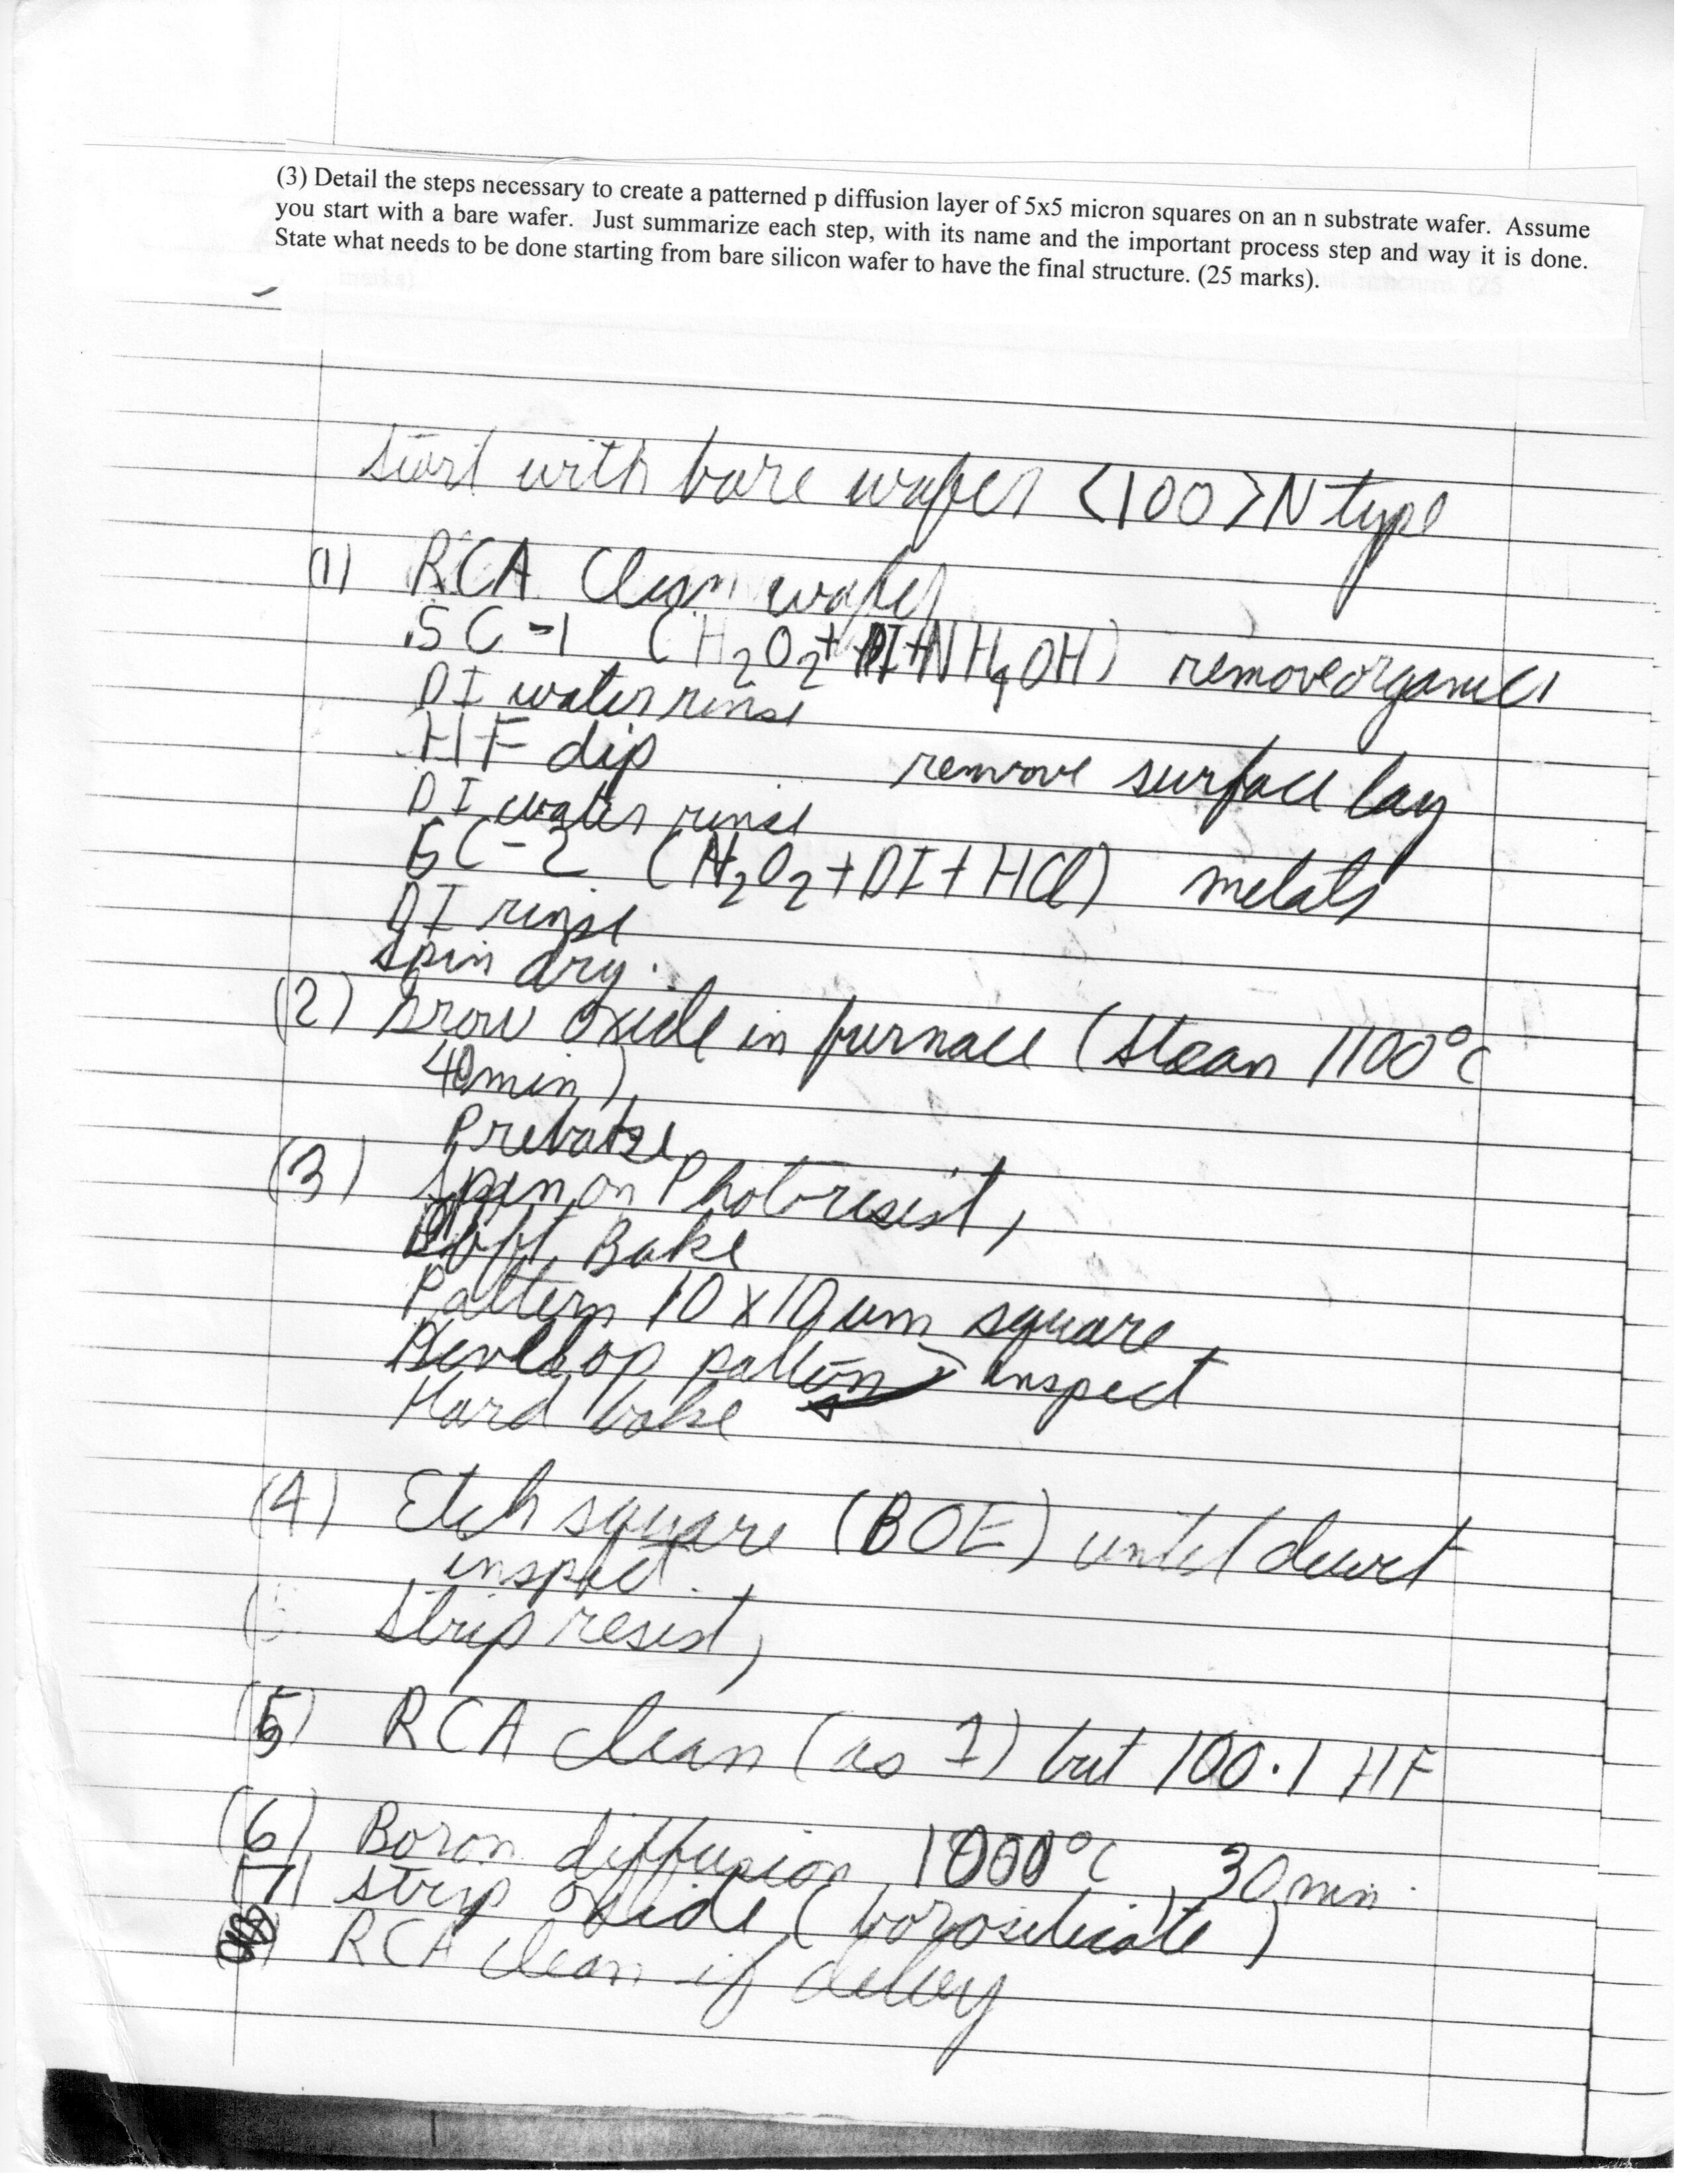 (3) Detail the steps necessary to create a patterned p diffusion layer of 5x5 micron squares on an n substrate wafer. Assume
you start with a bare wafer. Just summarize each step, with its name and the important process step and way it is done.
State what needs to be done starting from bare silicon wafer to have the final structure. (25 marks).
Start with bare wafer <100> N type
(1) RCA Clean wafer
SC-1 (H2O2 + DI + NH4OH) remove organics
DI water rinse
HF dip remove surface lay
DI water rinse
SC-2 (H2O2 + DI + HCl) metals
DI rinse
spin dry.
(2) Grow oxide in furnace (Steam 1100°C
40 min),
Prebake
(3) Spin on Photoresist,
Soft Bake
Pattern 10 x 10 um square,
Develop pattern, inspect
Hard bake
(4) Etch square (BOE) until dewet
inspect.
Strip resist,
(5) RCA clean (as 1) but 100:1 HF
(6) Boron diffusion 1000°C, 30 min.
(7) strip oxide (borosilicate)
RCA clean if delay